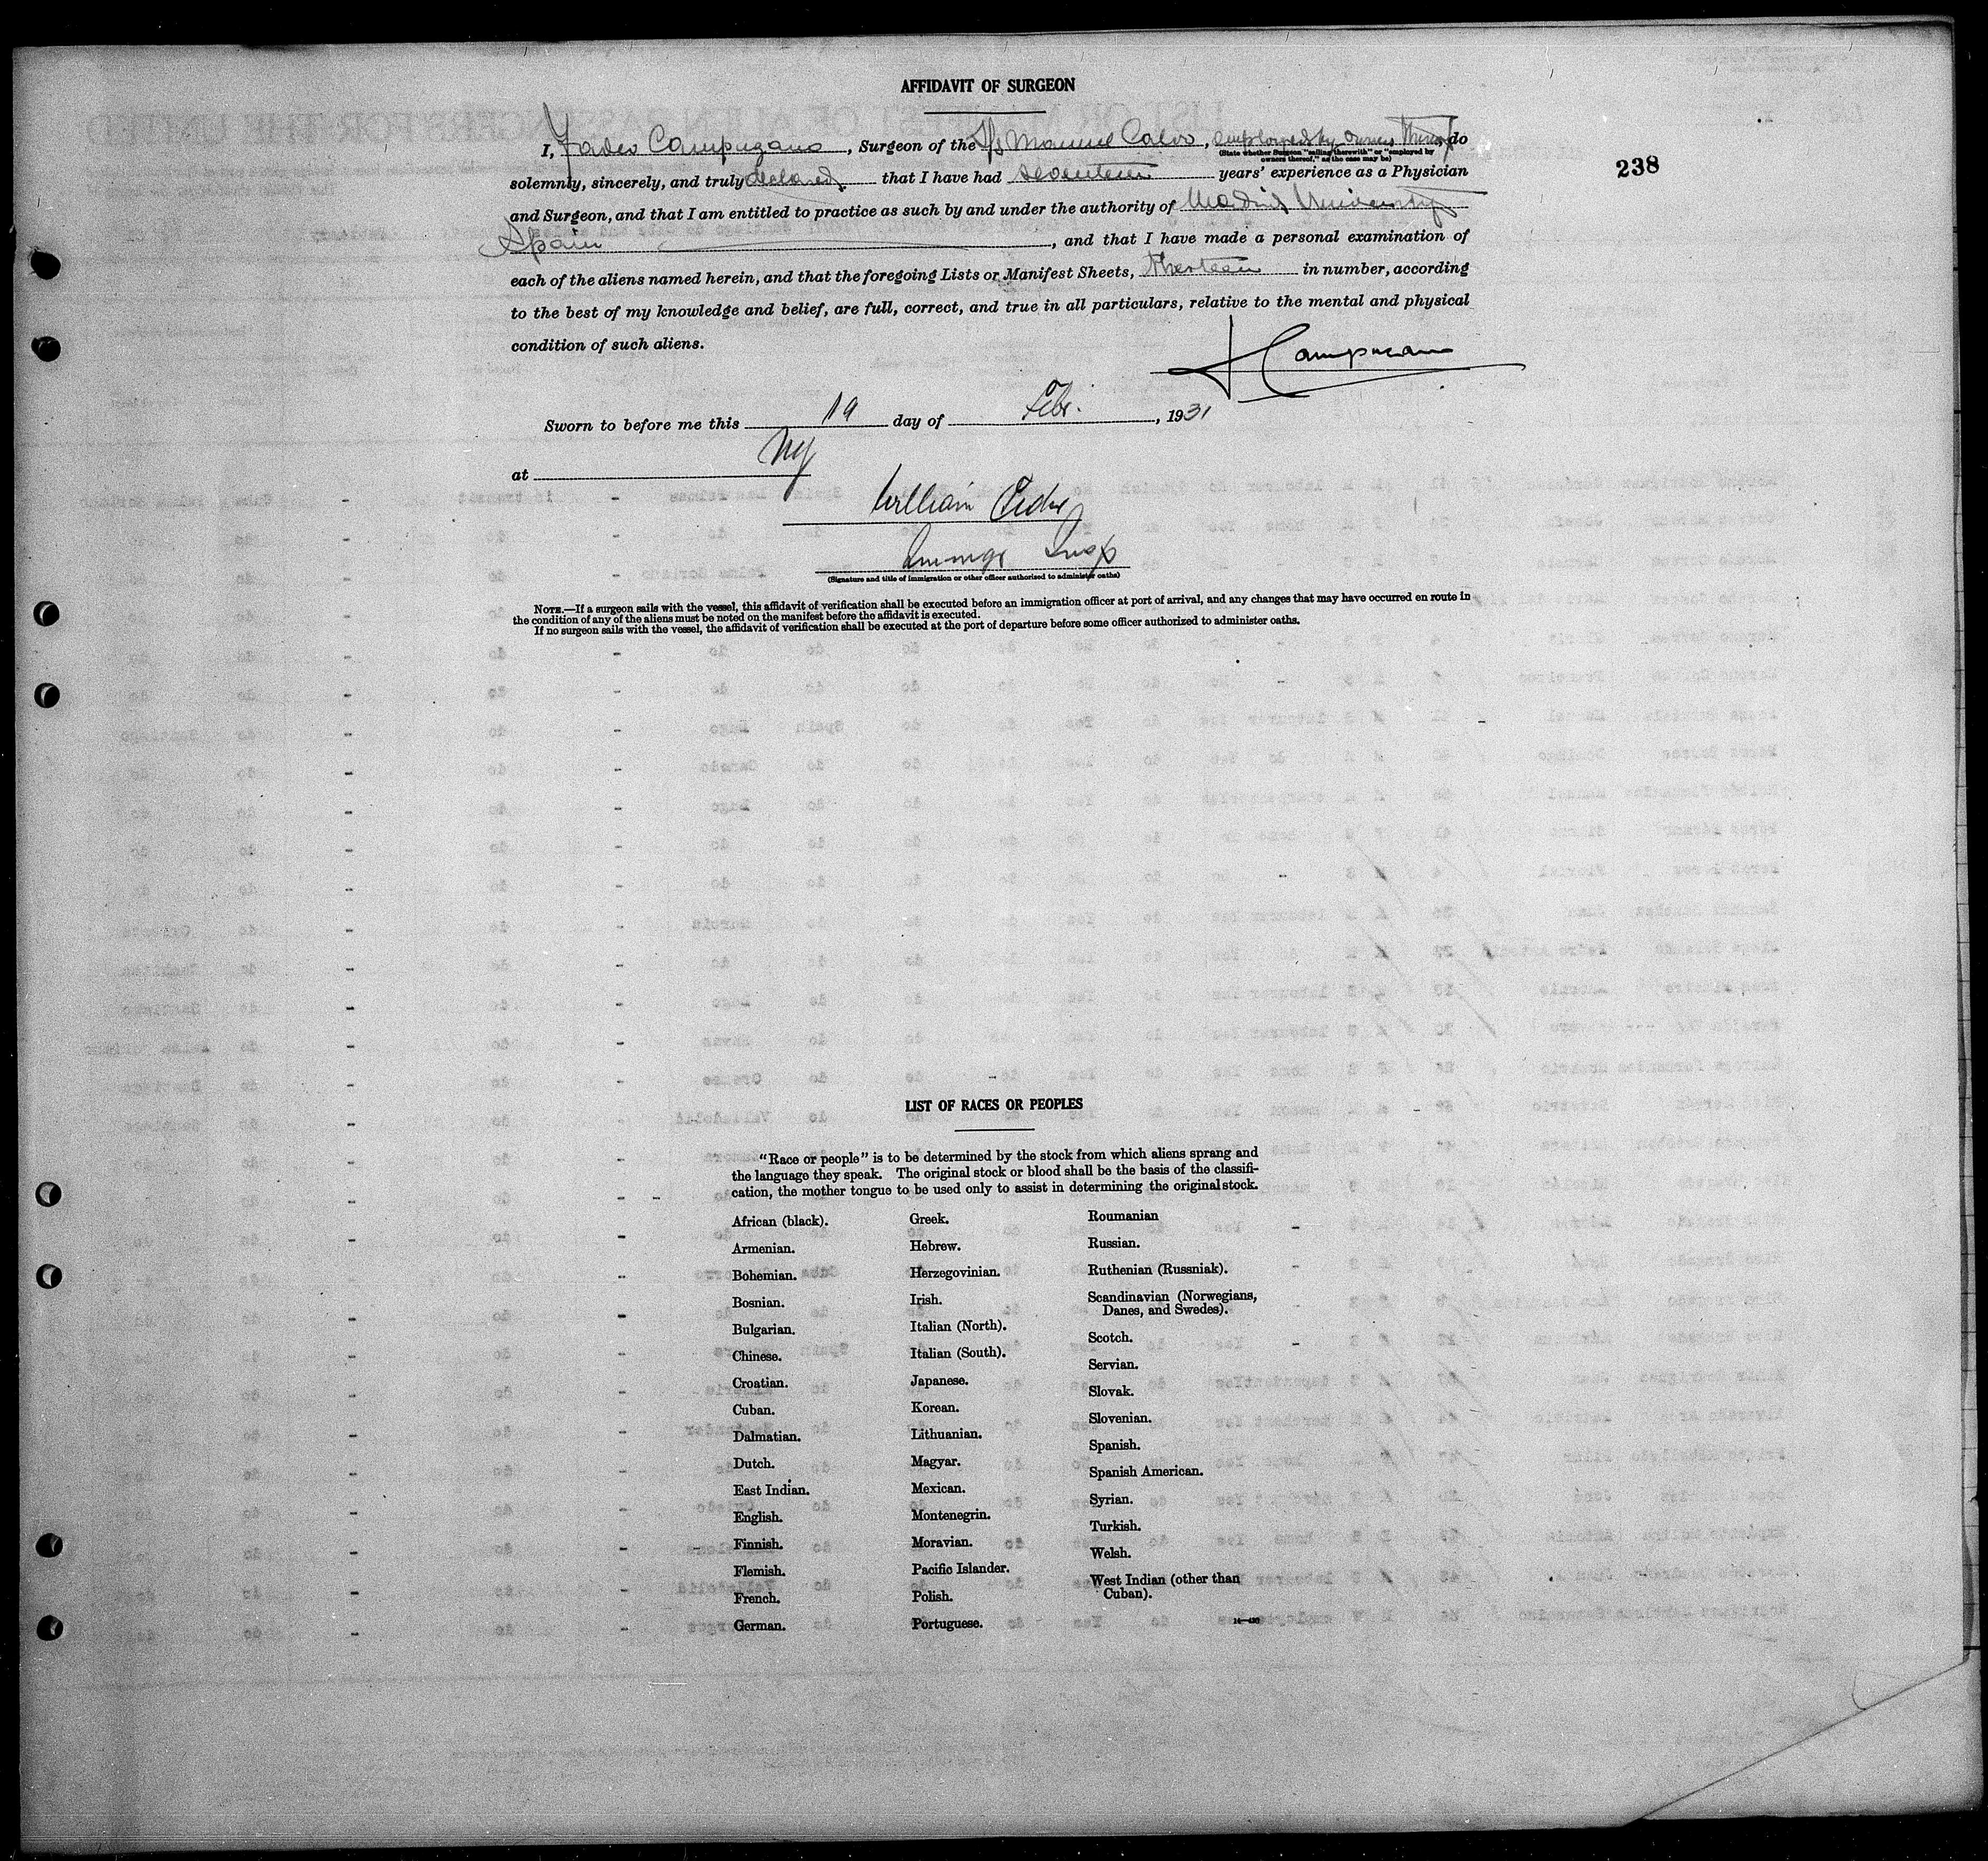 AFFIDAVIT OF SURGEON
I, Tadeo Campuzano, Surgeon of the S/S Manuel Calvo, employed by owners thereof do
(State whether Surgeon "sailing therewith" or "employed by
owners thereof," as the case may be)
238
solemnly, sincerely, and truly declared that I have had seventeen years' experience as a Physician
and Surgeon, and that I am entitled to practice as such by and under the authority of Madrid University
Spain, and that I have made a personal examination of
each of the aliens named herein, and that the foregoing Lists or Manifest Sheets, thirteen in number, according
to the best of my knowledge and belief, are full, correct, and true in all particulars, relative to the mental and physical
condition of such aliens.
Campuzano
Sworn to before me this 19 day of Febr., 1931
at NY
William
Immgr Insp
(Signature and title of immigration or other officer authorized to administer oaths)
NOTE.—If a surgeon sails with the vessel, this affidavit of verification shall be executed before an immigration officer at port of arrival, and any changes that may have occurred en route in
the condition of any of the aliens must be noted on the manifest before the affidavit is executed.
If no surgeon sails with the vessel, the affidavit of verification shall be executed at the port of departure before some officer authorized to administer oaths.
LIST OF RACES OR PEOPLES
"Race or people" is to be determined by the stock from which aliens sprang and
the language they speak. The original stock or blood shall be the basis of the classifi-
cation, the mother tongue to be used only to assist in determining the original stock.
African (black).
Armenian.
Bohemian.
Bosnian.
Bulgarian.
Chinese.
Croatian.
Cuban.
Dalmatian.
Dutch.
East Indian.
English.
Finnish.
Flemish.
French.
German.
Greek.
Hebrew.
Herzegovinian.
Irish.
Italian (North).
Italian (South).
Japanese.
Korean.
Lithuanian.
Magyar.
Mexican.
Montenegrin.
Moravian.
Pacific Islander.
Polish.
Portuguese.
Roumanian
Russian.
Ruthenian (Russniak).
Scandinavian (Norwegians,
Danes, and Swedes).
Scotch.
Servian.
Slovak.
Slovenian.
Spanish.
Spanish American.
Syrian.
Turkish.
Welsh.
West Indian (other than
Cuban).